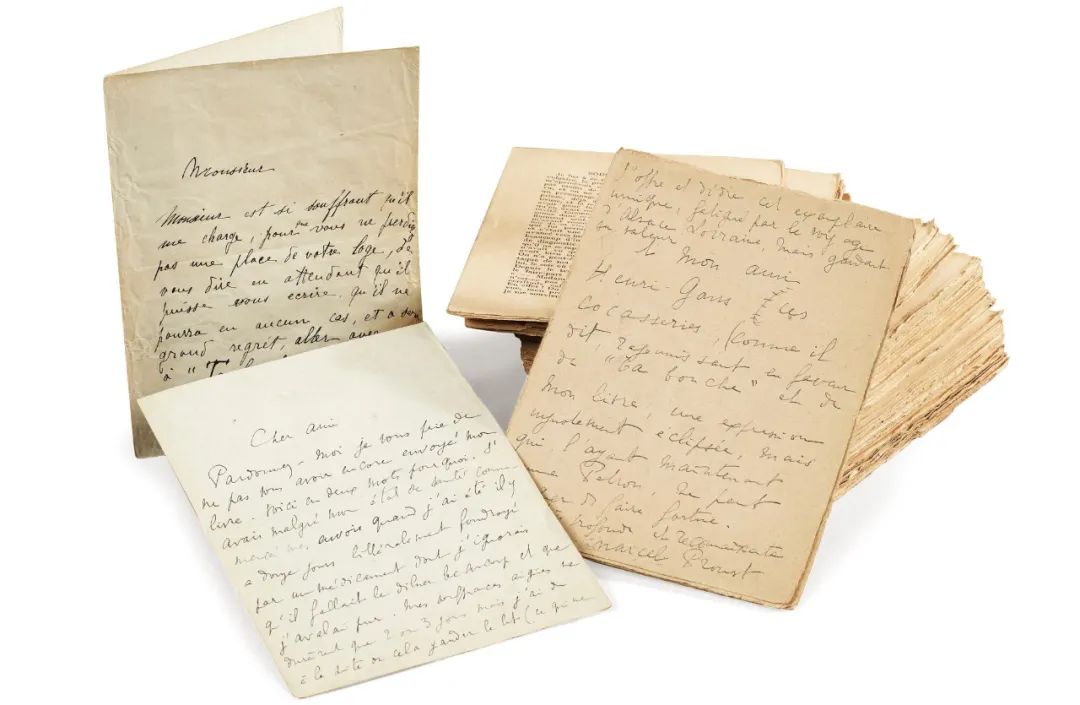 Monsieur
Monsieur est si souffrant qu'il
me charge, pour que vous ne perdiez
pas une place de votre loge, de
vous dire en attendant qu'il
puisse vous écrire, qu'il ne
pourra en aucun cas, et à son
grand regret, aller avec
à "T
Cher ami
Pardonnez-moi je vous prie de
ne pas vous avoir encore envoyé mon
livre. Voici en deux mots pourquoi. J'
avais malgré mon état de santé comm
envois quand j'ai été il y
a douze jours littéralement foudroyé
par un médicament dont j'ignorais
qu'il fallait le diluer beaucoup et que
j'avalai pur. Mes souffrances aigües ne
durèrent que 2 ou 3 jours mais j'ai dû
à la suite de cela garder le lit (ce qui ne
J'offre et dédie cet exemplaire
unique, fatigué par le voyage
d'Alsace Lorraine, mais gardant
sa valeur
à Mon ami
Henri-Gans ces
cocasseries, (comme il
dit, rajeunissant en faveur
de "Ta bouche" et de
Mon livre, une expression
injustement éclipsée, mais
qui, l'ayant maintenant
ne peut
de faire fortune.
profonde et reconnaissante
Marcel Proust